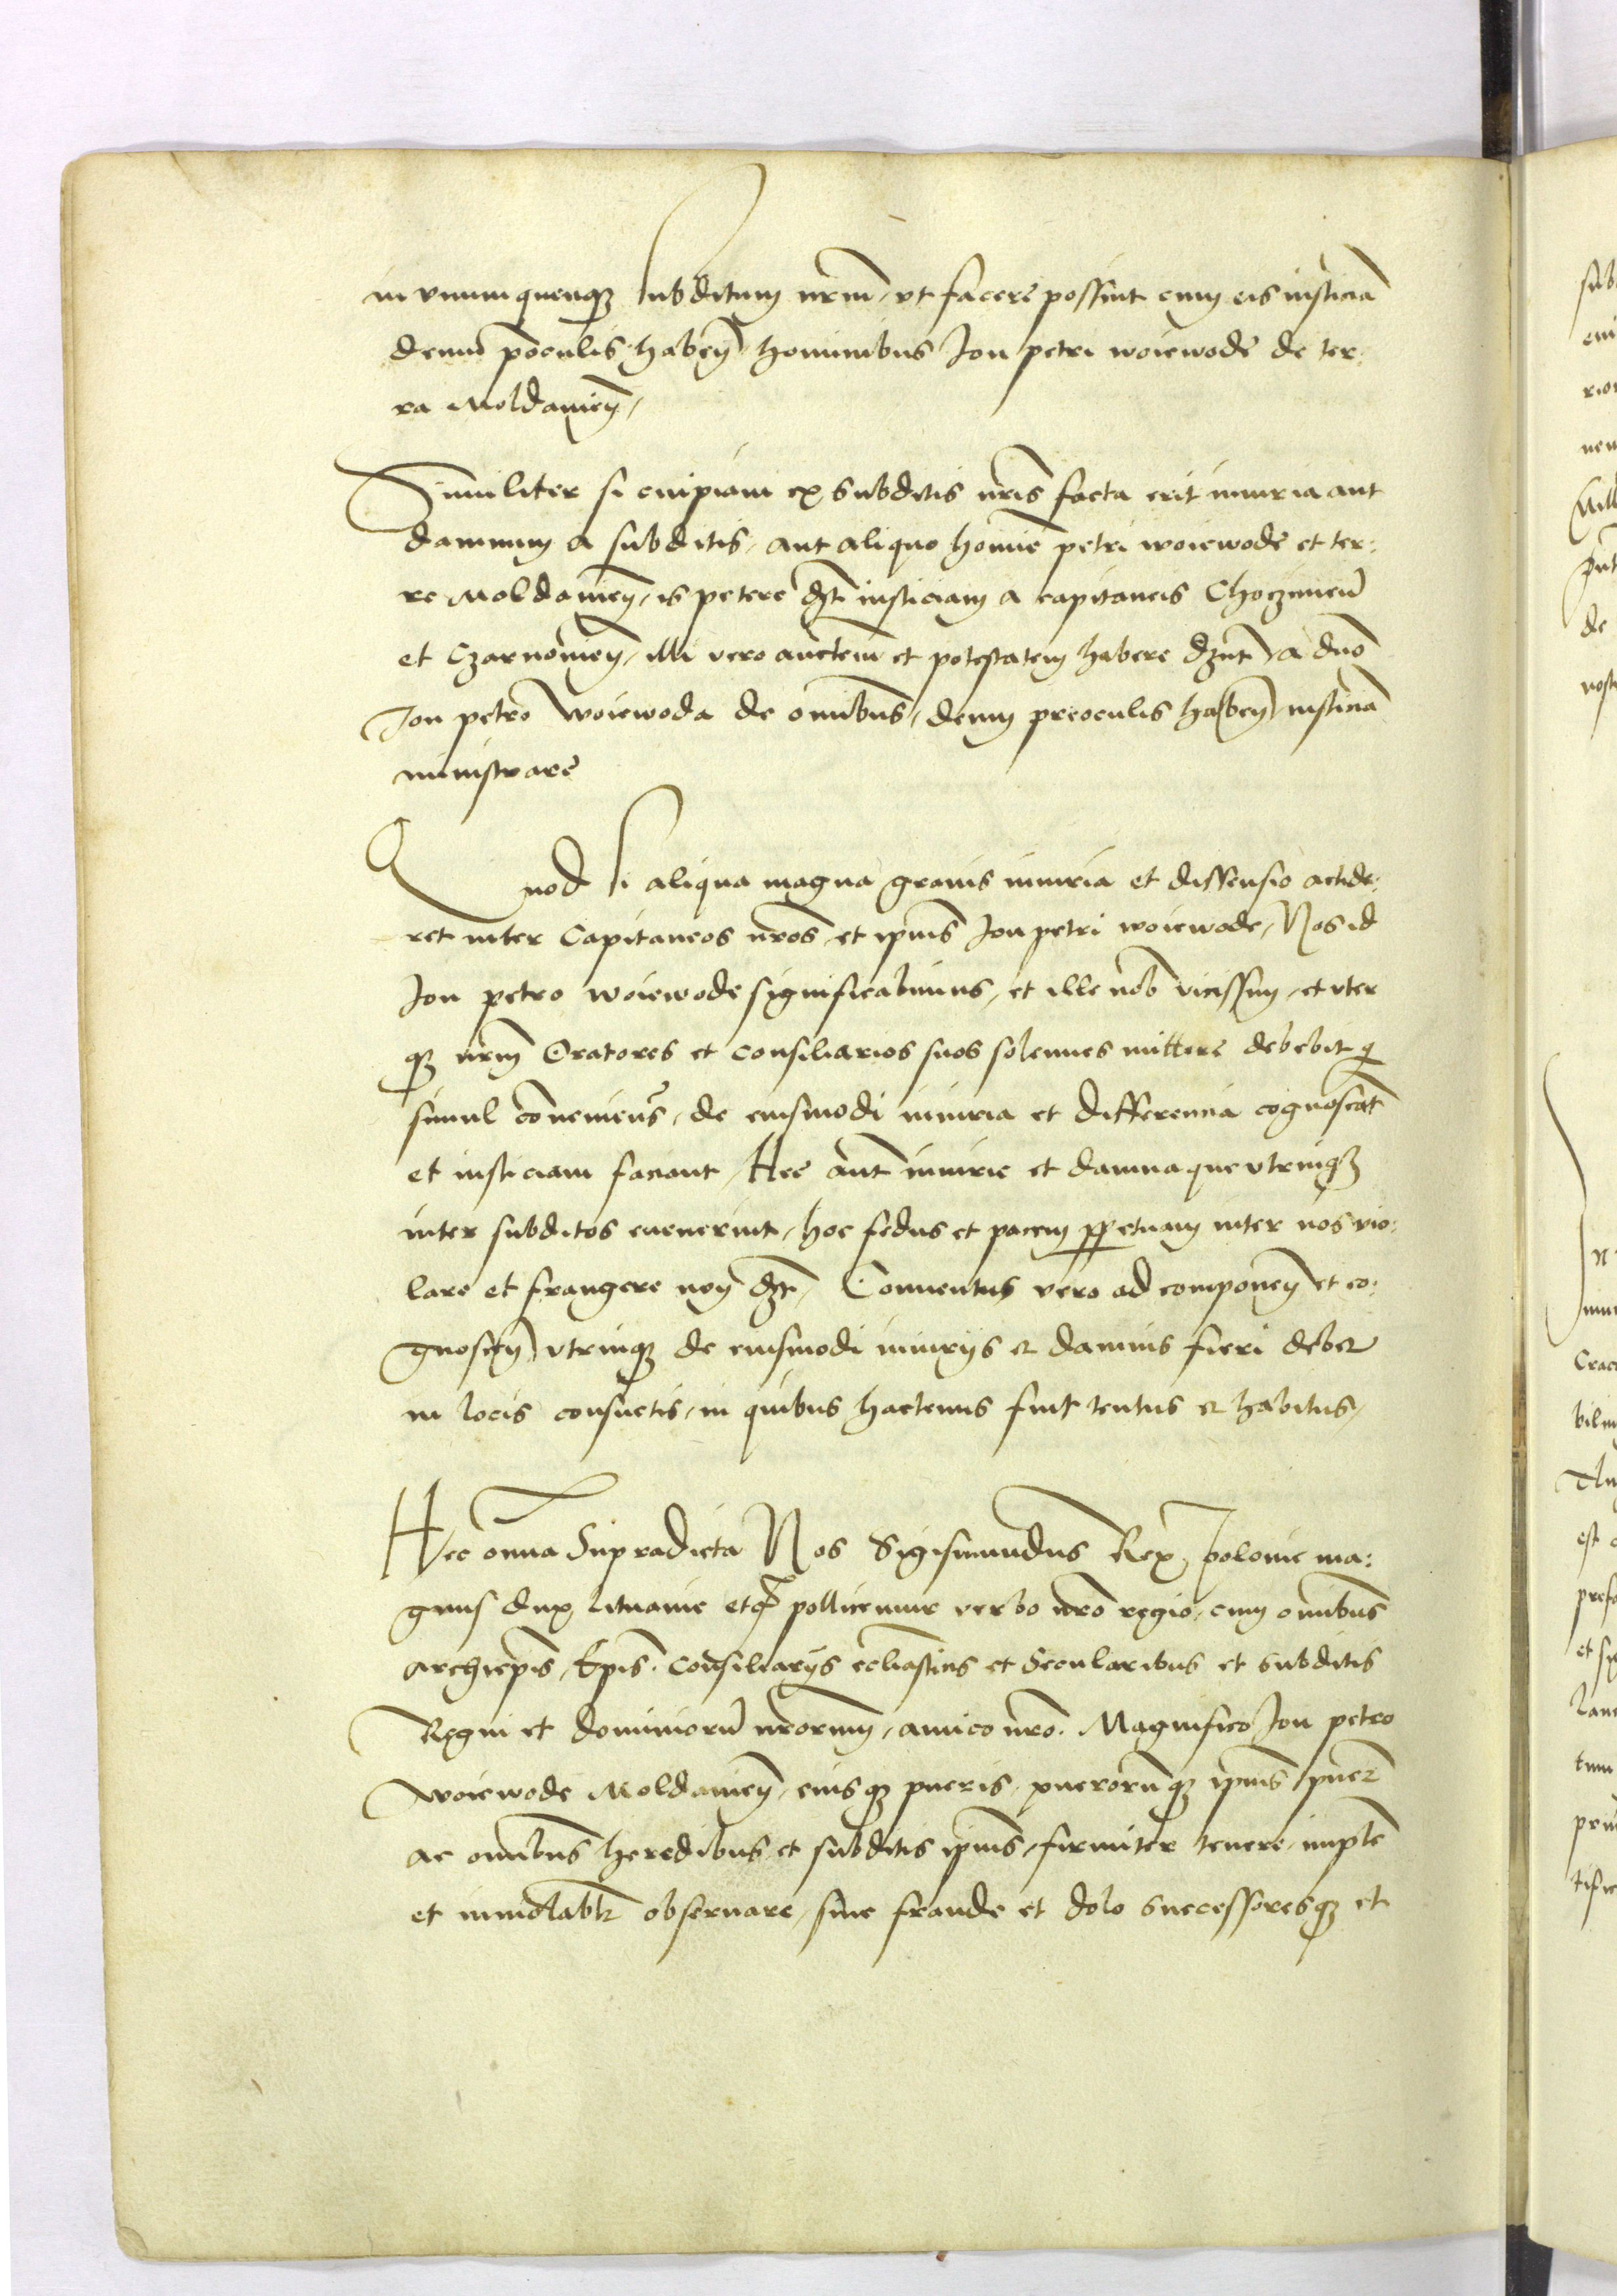 in vnumquenqꝫ subditum nr̄m, vt facere possint cum eis iusticiā
deum p̄oculis haben̄ hominibus Jon petri woiewode de ter:
ra Moldauien̄,
Similiter si cuipiam ex subditis nr̄is facta erit iniuria aut
damnum a subditis, aut aliquo homīe petri woiewode et ter:
re Moldauien̄, is petere dꝫt iusticiam a capitaneis Choczimien̄
et Czarnowien̄, illi vero auctem̄ et potestatem habere dꝫnt a dn̄o
Jon petro woiewoda de om̄ibus, deum preoculis haben̄ iusticiā
ministrare
Quod si aliqua magna grauis iniuria et dissensio accide:
ret inter Capitaneos nr̄os et ipsius Jon petri woiewode, Nos id
Jon petro woiewode significabimus, et ille nob̄ vicissim, et vter
qꝫ nr̄m Oratores et consiliarios suos solennes mittere debebit q
simul conuenien̄t, de eiusmodi iniuria et differencia cognoscāt
et iusticiam faciant, Hec aūt iniurie et damna que vtrinqꝫ
inter subditos euenerint, hoc fedus et pacem ꝑpetuam inter nos vio:
lare et frangere non dꝫt, Conuentus vero ad componen̄ et co:
gnoscen̄ vtrinqꝫ de eiusmodi iniurijs et damnis fieri debet
in locis consuetis, in quibus hactenus fuit tentus et habitus,
Hec om̄ia Supradicta Nos Sigismundus Rex polonie ma:
gnus dux lituanie etc pollicemur verbo nr̄o regio, cum om̄ibus
archiep̄is, Ep̄is, consiliarijs ecl̄iasticis et Secularibus et subditis
Regni et dominiorū nr̄orum, amico nr̄o Magnifico Jon petro
woiewode Moldauien̄, eiusqꝫ pueris, puerorūqꝫ ip̄ius pueris
ac om̄ibus heredibus et subditis ip̄ius, firmiter tenere, implē
et inuiolabl̄r obseruare, sine fraude et dolo successoresqꝫ et